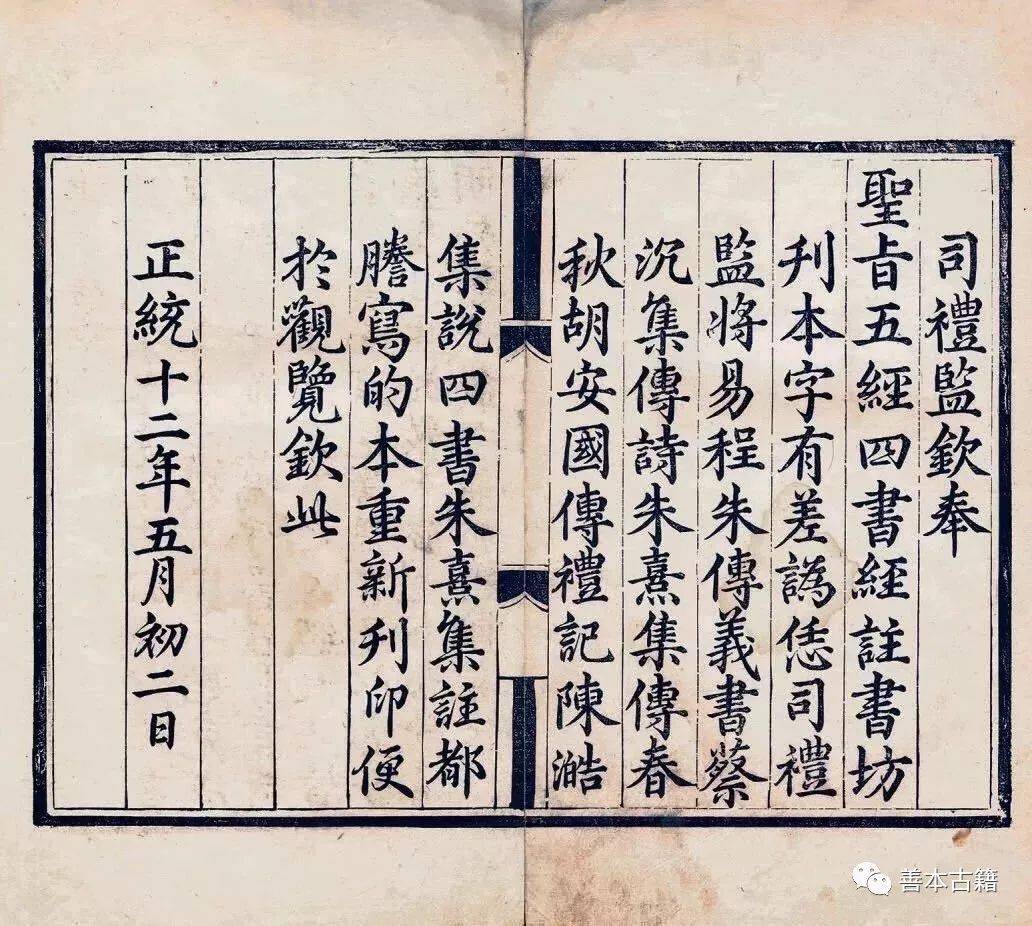 司禮監欽奉
聖旨五經四書經註書坊
刋本字有差譌恁司禮
監將易程朱傳義書蔡
沉集傳詩朱熹集傳春
秋胡安國傳禮記陳澔
集說四書朱熹集註都
謄寫的本重新刋印便
於觀覽欽此
正統十二年五月初二日
善本古籍